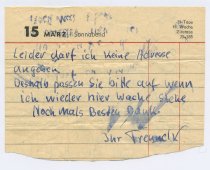 15 MÄRZ Sonnabend
Leider darf ich keine Adresse
angeben
Deshalb passen Sie bitte auf wenn
ich wieder hier Wache stehe
Nochmals Besten Dank
Ihr Freund